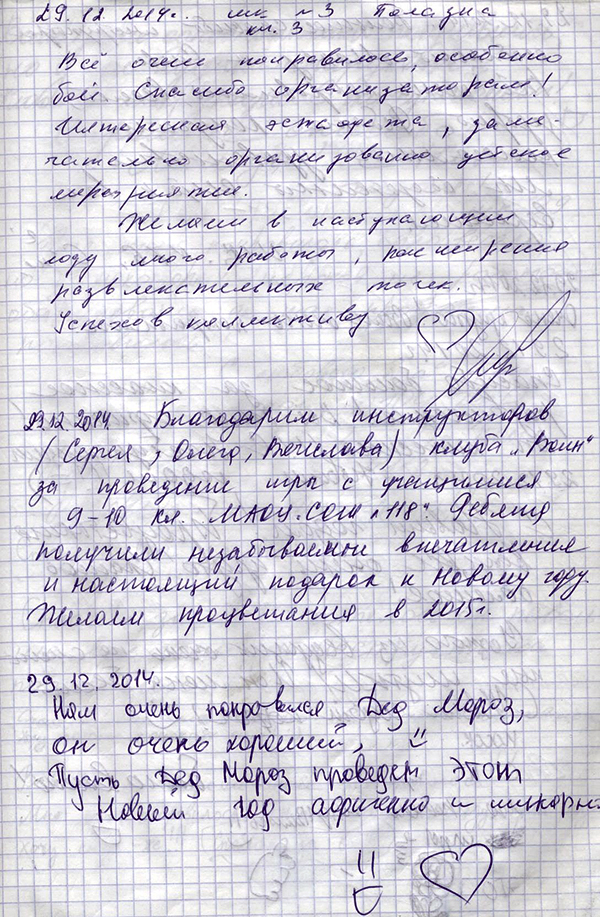 29.12.2014г. шк №3 Полазна
кл. 3
Всё очень понравилось, особенно
бои. Спасибо организаторам!
Интересная эстафета, заме-
чательно организовано детское
мероприятие.
Желаем в наступающем
году много работы, расширения
развлекательных точек.
Успехов коллективу
29.12.2014 Благодарим инструкторов
(Сергея, Олега, Вечислава) клуба „Воин"
за проведение игры с учащимися
9-10 кл. МАОУ СОШ „118". Ребята
получили незабываемые впечатления
и настоящий подарок к Новому году.
Желаем процветания в 2015г.
29.12.2014.
Нам очень понравился Дед Мороз,
он очень хороший,
Пусть Дед Мороз проведет этот
Новый год афигенно и шикарн